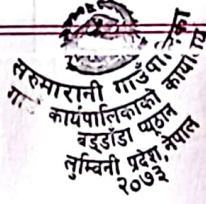 सरुमारानी गाउँपालिका
कार्यपालिकाको कार्यालय
बड्डाँडा प्यूठान
लुम्विनी प्रदेश, नेपाल
२०७३